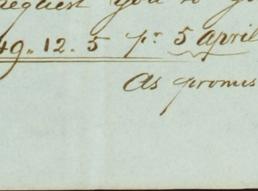 request you to
49. 12. 5 pr 5 april
As promis